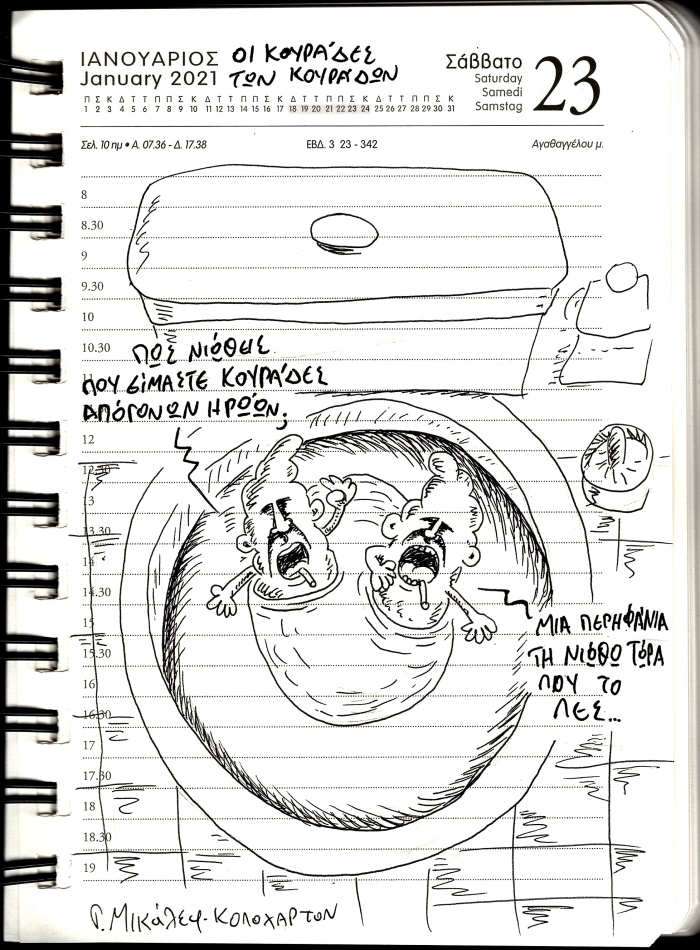 ΙΑΝΟΥΑΡΙΟΣ
January 2021
ΟΙ ΚΟΥΡΑΔΕΣ
ΤΩΝ ΚΟΥΡΑΔΩΝ
Π Σ Κ Δ Τ Τ Π Π Σ Κ Δ Τ Τ Π Π Σ Κ Δ Τ Τ Π Π Σ Κ Δ Τ Τ Π Π Σ Κ
1 2 3 4 5 6 7 8 9 10 11 12 13 14 15 16 17 18 19 20 21 22 23 24 25 26 27 28 29 30 31
Σάββατο
Saturday
Samedi
Samstag
23
Σελ. 10 ημ • Α. 07.36 - Δ. 17.38
ΕΒΔ. 3 23 - 342
Αγαθαγγέλου μ.
8
8.30
9
9.30
10
10.30
11
ΠΩΣ ΝΙΩΘΕΙΣ
ΠΟΥ ΕΙΜΑΣΤΕ ΚΟΥΡΑΔΕΣ
ΑΠΟΓΟΝΩΝ ΗΡΩΩΝ;
12
12.30
13
13.30
14
14.30
15
15.30
16
16.30
17
17.30
18
18.30
19
ΜΙΑ ΠΕΡΗΦΑΝΙΑ
ΤΗ ΝΙΩΘΩ ΤΩΡΑ
ΠΟΥ ΤΟ
ΛΕΣ...
Γ. ΜΙΚΑΛΕΦ-ΚΟΛΟΧΑΡΤΩΝ